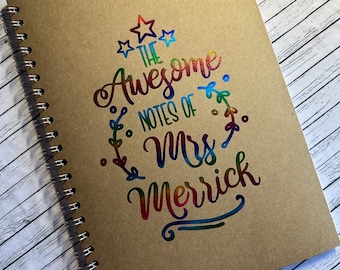 THE
Awesome
NOTES OF
Mrs
Merrick